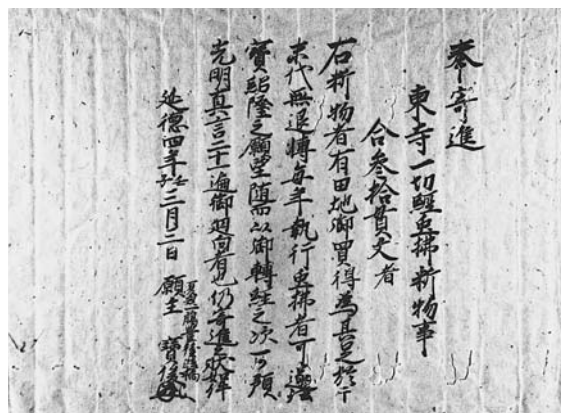 奉寄進
東寺一切經虫拂料物事
合叁拾貫文者
右料物者有田地御買得為其足於于
末代無退轉每年執行虫拂者可
寳紹隆之願望随而以御轉經之次可預
光明真言二十一遍御廻向者也仍寄進之狀如件
延德四年壬子三月二日 願主